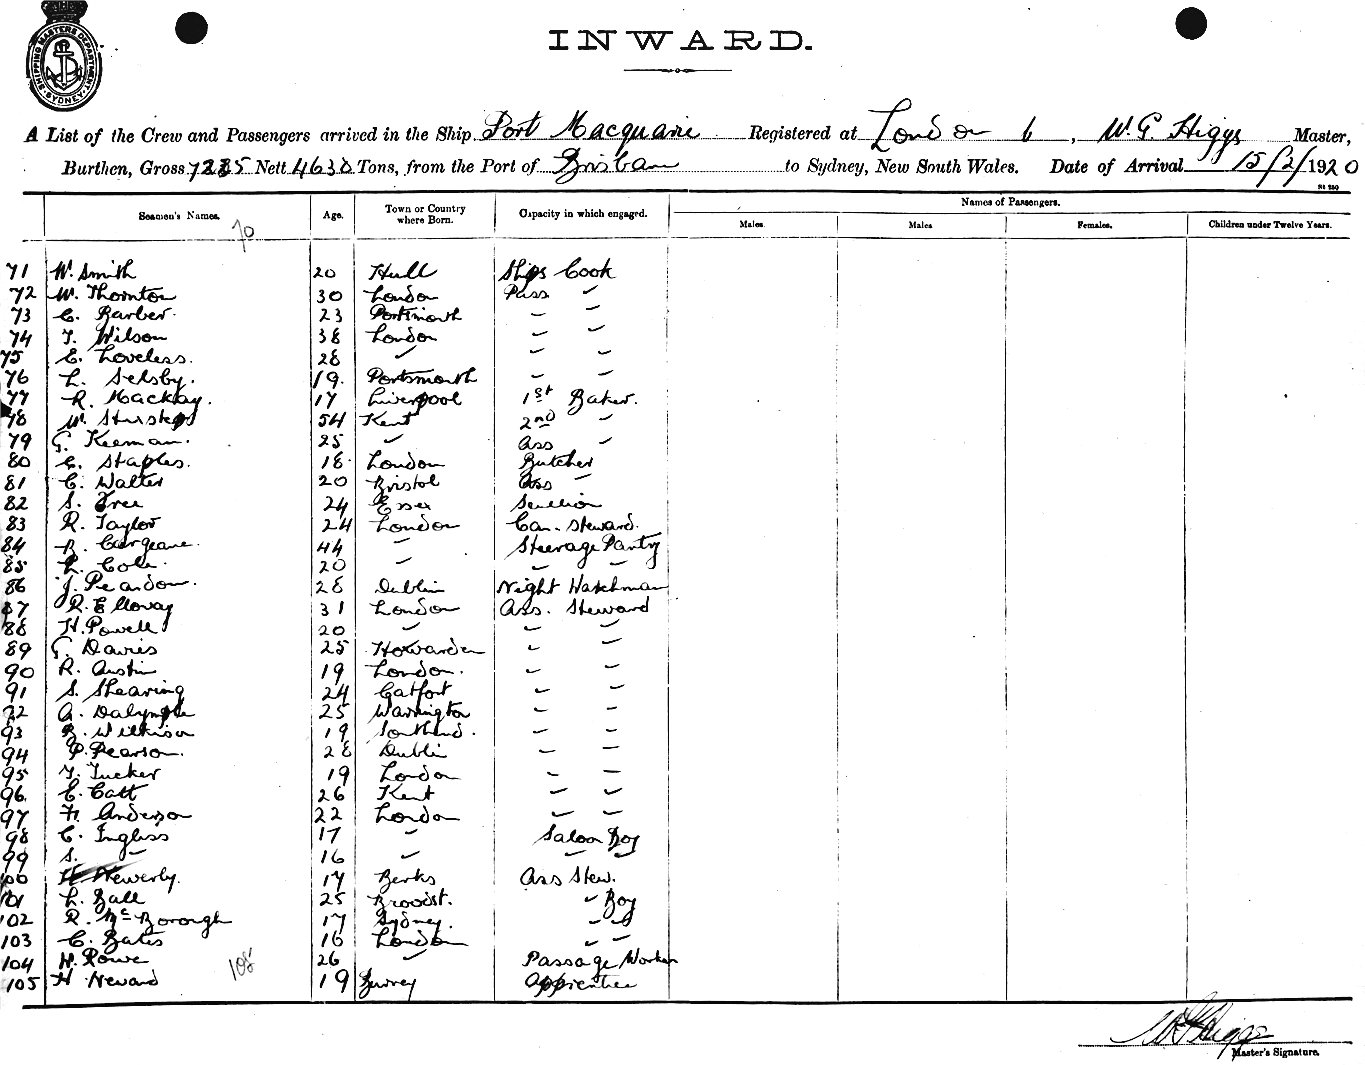 SHIPPING MASTERS DEPARTMENT SYDNEY
INWARD.
A List of the Crew and Passengers arrived in the Ship Port Macquarie Registered at London 6, W. G. Higgs Master,
Burthen, Gross Nett 4630 Tons, from the Port of Brisban to Sydney, New South Wales. Date of Arrival 15/2/1920
Seamen's Names. Age. Town or Country where Born. Capacity in which engaged. Names of Passengers.
Males. Males Females. Children under Twelve Years.
70
71 W. Smith 20 Hull Ships Cook
72 W. Thornton 30 London Pass "
73 C. Barber. 23 Portsmouth " "
74 T. Wilson 38 London " "
75 E. Loveless. 28 " " "
76 L. Selsby. 19. Portsmouth " "
77 R. Mackay. 17 Liverpool 1st Baker.
78 W. 54 Kent 2nd "
79 G. Keeman. 25 " Ass "
80 C. Staples. 18. London Butcher
81 C. Walter 20 Bristol Ass "
82 S. Tree 24 Essex Scullion
83 R. Taylor 24 London Can. Steward.
84 44 " Steerage Pantry
85 L. Cole. 20 " " "
86 J. 28 Dublin Night Watchman
87 R. Elloway 31 London Ass. Steward
88 H. Powell 20 " " "
89 G. Davies 25 Howarden " "
90 R. Austin 19 London. " "
91 S. Shearing 24 Catfort " "
92 A. Dalymple 25 Warrington " "
93 Wilkison 19 Southend. " "
94 P. Pearson. 28 Dublin " "
95 T. Tucker 19 London " "
96 E. Catt 26 Kent " "
97 H. Anderson 22 London " "
98 C. Ingliss 17 " Saloon Boy
99 S. " 16 " " "
100 H Newerly. 17 Berks Ass Stew.
101 L. Ball 25 Broodst. " Boy
102 R. McBorough 17 Sydney. " "
103 C. Bates 16 London " "
104 H. Rowe 26 " Passage Worker
105 H Neward 19 Surrey Apprentice
105
W G Higgs
Master's Signature.